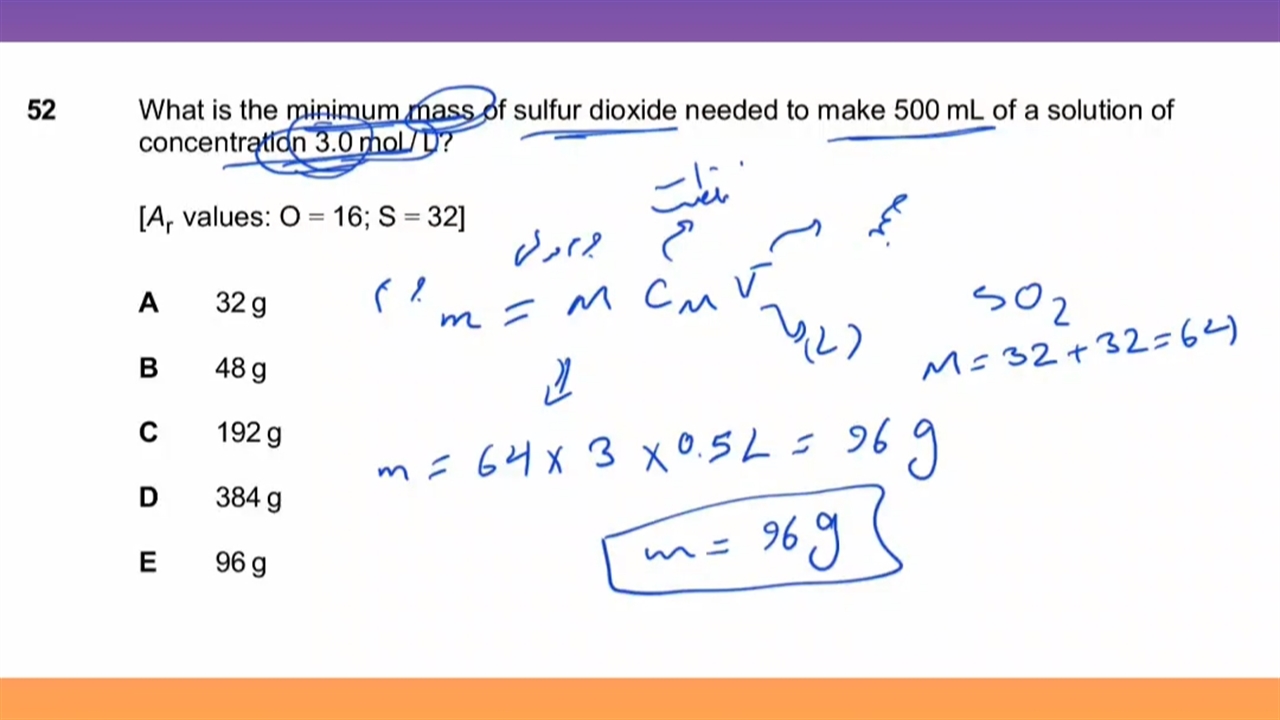 52 What is the minimum mass of sulfur dioxide needed to make 500 mL of a solution of
concentration 3.0 mol / L?
[Ar values: O = 16; S = 32]
A 32 g
B 48 g
C 192 g
D 384 g
E 96 g
m = M CM V
(L)
SO2
M = 32 + 32 = 64
m = 64 x 3 x 0.5 L = 96 g
m = 96 g